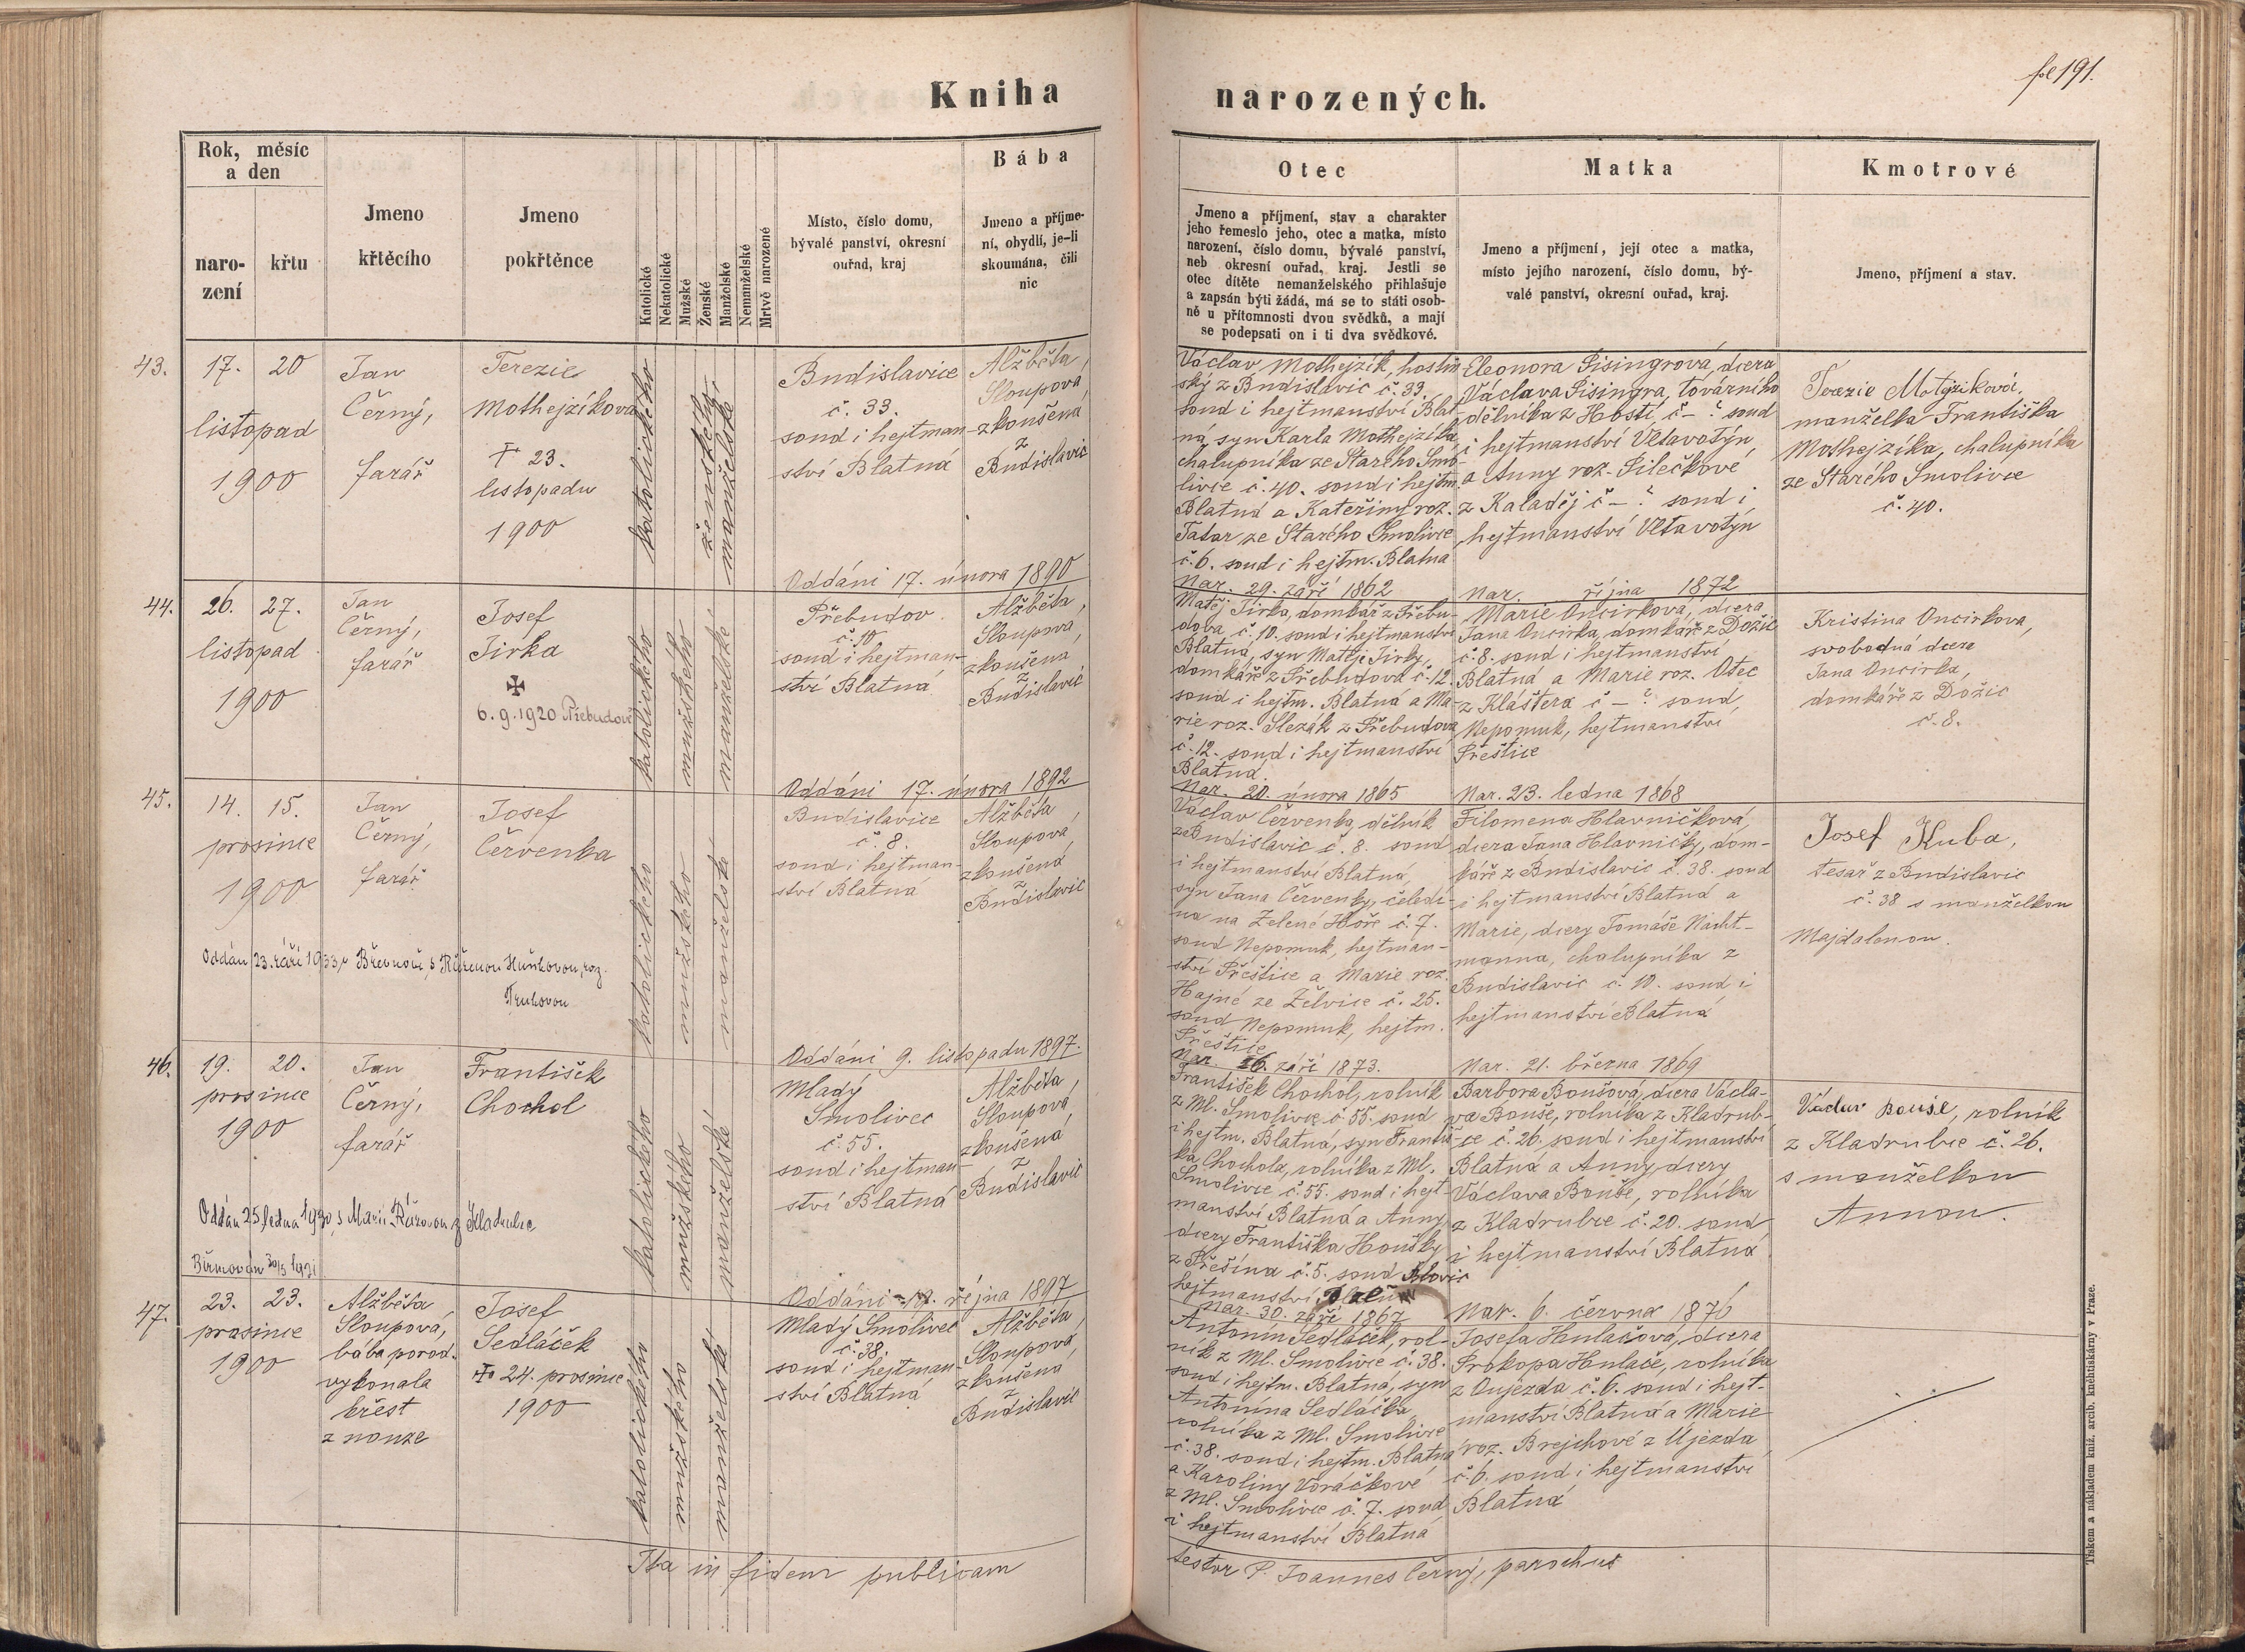 fol 191.
Kniha narozených.
Rok, měsíc
a den
naro-
zení
křtu
Jmeno
křtěcího
Jmeno
pokřtěnce
Katolické
Nekatolické
Mužské
Ženské
Manželské
Nemanželské
Mrtvě narozené
Místo, číslo domu,
bývalé panství, okresní
ouřad, kraj
Bába
Jmeno a příjme-
ní, obydlí, je-li
skoumána, čili
nic
Otec
Jmeno a příjmení, stav a charakter
jeho řemeslo jeho, otec a matka, místo
narození, číslo domu, bývalé panství,
neb okresní ouřad, kraj. Jestli se
otec dítěte nemanželského přihlašuje
a zapsán býti žádá, má se to státi osob-
ně u přítomnosti dvou svědků, a mají
se podepsati on i ti dva svědkové.
Matka
Jmeno a příjmení, její otec a matka,
místo jejího narození, číslo domu, bý-
valé panství, okresní ouřad, kraj.
Kmotrové
Jmeno, příjmení a stav.
43.
17. 20
listopad
1900
Jan
Černý,
farář
Terezie
Mothejzíkova
† 23.
listopadu
1900
katolického
ženského
manželské
Budislavice
č. 33.
soud i hejtman-
ství Blatná
Alžběta
Sloupová,
zkoušená
z
Budislavic
Oddáni 17. února 1890
Václav Mothejzík, hostin-
ský z Budislavic č. 33.
soud i hejtmanství Blat-
ná, syn Karla Mothejzíka
chalupníka ze Starého Smo-
livce č. 40. soud i hejtm.
Blatná a Kateřiny roz.
Tatar ze Starého Smolivce
č. 6. soud i hejtm. Blatna
Nar. 29. září 1862
Eleonora Pisingrová, dcera
Václava Pisingra, továrního
dělníka z Hostí č - ? soud
i hejtmanství Vltavotýn
a Anny roz. Pilečkové
z Kaladěj č - ? soud i
hejtmanství Vltavotýn
Nar. října 1872
Terezie Motejziková,
manželka Františka
Mothejzíka, chalupníka
ze Starého Smolivce
č. 40.
44.
26. 27.
listopad
1900
Jan
Černý,
farář
Josef
Jirka
✠
6. 9. 1920 Přebudov
katolického
mužského
manželské
Přebudov
č. 10
soud i hejtman-
ství Blatná
Alžběta,
Sloupová,
zkoušená
z
Budislavic
Oddáni 17. února 1892
Matěj Jirka, domkář z Přebu-
dova č. 10. soud i hejtmanství
Blatná, syn Matěje Jirky,
domkáře z Přebudova č. 12.
soud i hejtm. Blatná a Ma-
rie roz. Slezák z Přebudova
č. 12. soud i hejtmanství
Blatná.
Nar. 20. února 1865
Marie Oncirková, dcera
Jana Oncirka, domkáře z Dožic
č. 8. soud i hejtmanství
Blatná a Marie roz. Otec
z Kláštera č - ? soud,
Nepomuk, hejtmanství
Přeštice
Nar. 23. ledna 1868
Kristina Oncirkova,
svobodná dcera
Jana Oncirka,
domkáře z Dožic
č. 8.
45.
14. 15.
prosince
1900
Jan
Černý,
farář
Josef
Červenka
Oddán 23. září 1933, v Břevnově, s Růženou Huňkovou, roz.
katolického
mužského
manželské
Budislavice
č. 8.
soud i hejtman-
ství Blatná
Alžběta
Sloupová,
zkoušená
z
Budislavic
Oddáni 9. listopadu 1897.
Václav Červenka, dělník
z Budislavic č. 8. soud
i hejtmanství Blatná,
syn Jana Červenky, čeledí-
na na Zelené Hoře č. 7.
soud Nepomuk, hejtman-
ství Přeštice a Marie roz.
Hajné ze Želvice č. 25.
soud Nepomuk, hejtm.
Přeštice
Nar. 26. září 1873.
Filomena Hlavničková,
dcera Jana Hlavničky, dom-
káře z Budislavic č. 38. soud
i hejtmanství Blatná a
Marie, dcery Tomáše Nacht-
manna, chalupníka z
Budislavic č. 10. soud i
hejtmanství Blatná
Nar. 21. března 1869
Josef Kuba,
tesař z Budislavic
č. 38 s manželkou
Majdalenou.
46.
19. 20.
prosince
1900
Jan
Černý,
farář
František
Chochol
Oddán 25. ledna 1930, s Marií Růžovou z Kladrubce
Biřmován 30/5 1921
katolického
mužského
manželské
Mladý
Smolivec
č. 55.
soud i hejtman-
ství Blatná
Alžběta,
Sloupová,
zkoušená
z
Budislavic
Oddáni 19. října 1897
František Chochol, rolník
z Ml. Smolivce č. 55. soud
i hejtm. Blatná, syn Františ-
ka Chochola, rolníka z Ml.
Smolivce č. 55. soud i hejt-
manství Blatná a Anny,
dcery Františka Houšky
z Přešína č. 5. soud Blovic
hejtmanství
Nar. 30. září 1867
Barbora Boušová, dcera Václa-
va Bouše, rolníka z Kladrub-
ce č. 26. soud i hejtmanství
Blatná a Anny, dcery
Václava Bouše, rolníka
z Kladrubce č. 20. soud
i hejtmanství Blatná
Nar. 6. června 1876
Václav Bouše, rolník
z Kladrubce č. 26.
s manželkou
Annou.
47.
23. 23.
prosince
1900
Alžběta
Sloupová,
bába porod.
vykonala
křest
z nouze
Josef
Sedláček
† 24. prosince
1900
katolického
mužského
manželské
Mladý Smolivec
č. 38.
soud i hejtman-
ství Blatná
Alžběta,
Sloupová,
zkoušená
z
Budislavic
Antonín Sedláček, rol-
ník z Ml. Smolivce č. 38.
soud i hejtm. Blatná, syn
Antonína Sedláčka
rolníka z Ml. Smolivce
č. 38. soud i hejtm. Blatná
a Karoliny Voráčkové
z Ml. Smolivce č. 7. soud
i hejtmanství Blatna
Josefa Hulačová, dcera
Prokopa Hulače, rolníka
z Oujezda č. 6. soud i hejt-
manství Blatná a Marie
roz. Brejchové z Újezda
č. 6. soud i hejtmanství
Blatná
Ita in fidem publicam
testor P. Joannes Černý, parochus
Tiskem a nákladem kníž. arcib. kněhtiskárny v Praze.